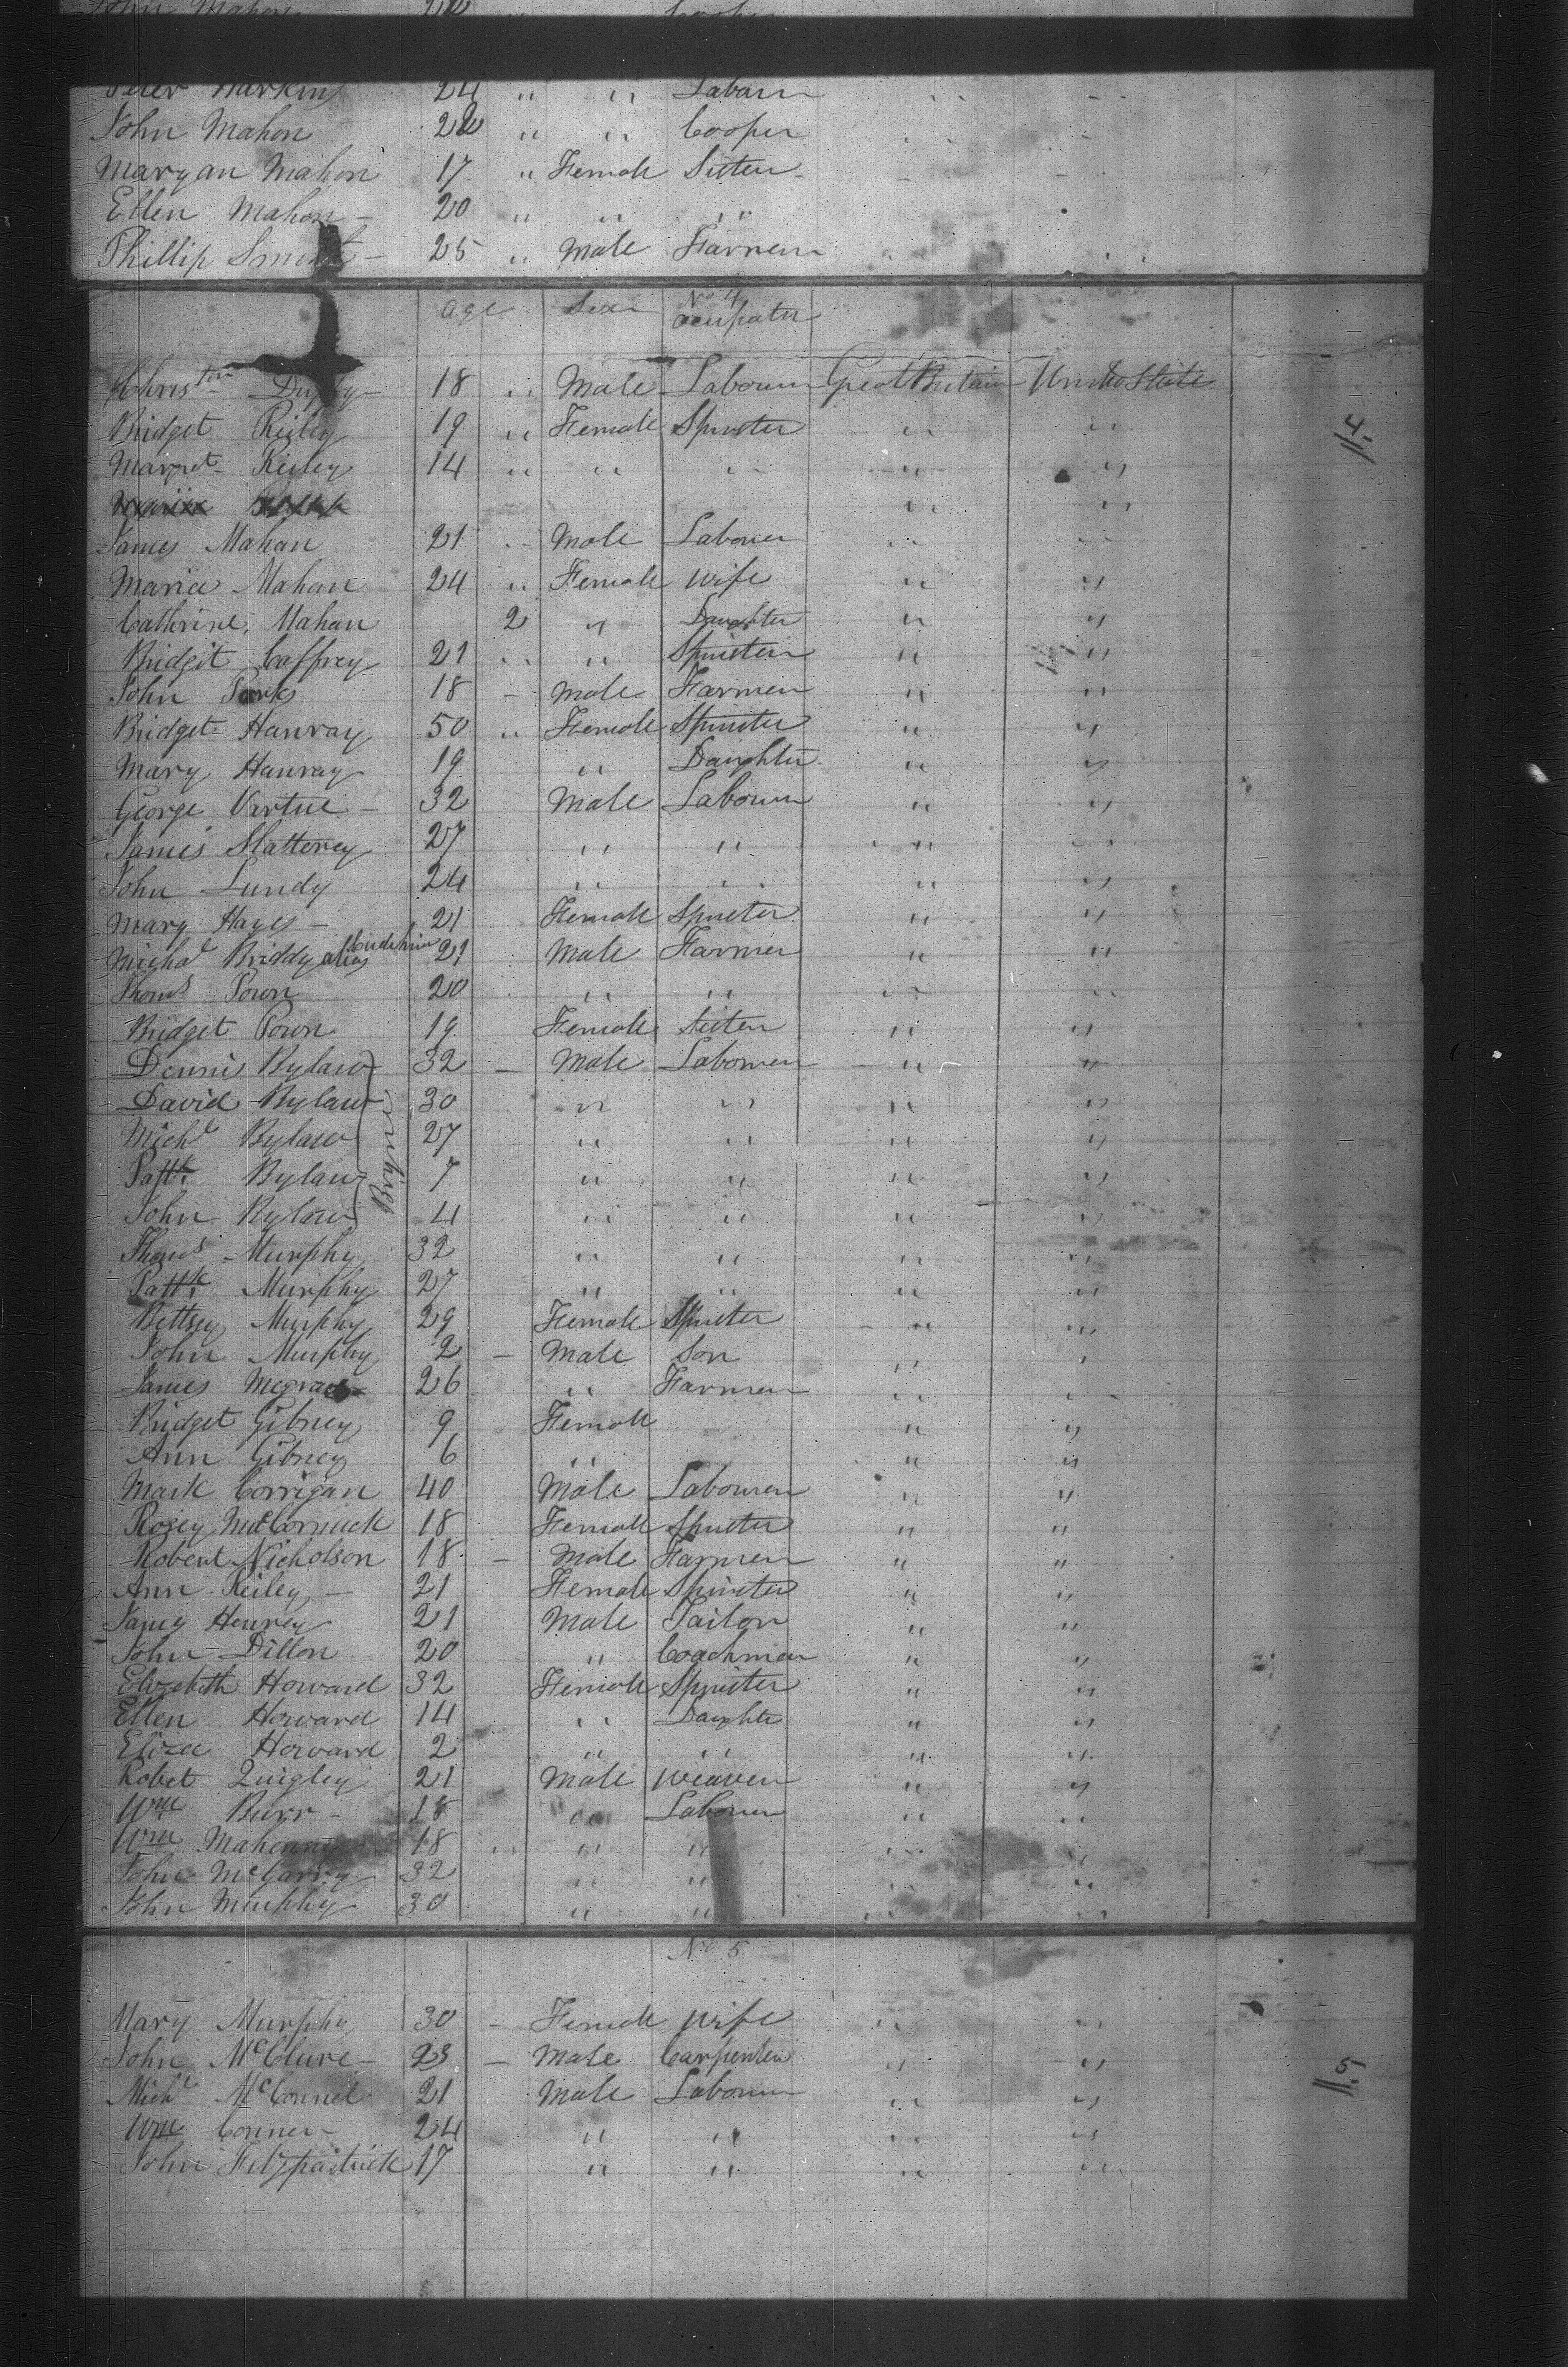 John Mahon 22 Cooper
Peter Harkin 24 " " Labourer
John Mahon 22 " " Cooper
Maryan Mahon 17 " Female Sister
Ellen Mahon 20 " " "
Phillip 25 " Male Farmer
No 4
age Sex Ocupater
18 " Male Labourer Great Britain United State
Bridget Reiley 19 " Female Spinster " "
Margret Reiley 14 " " " " "
" "
James Mahan 21 " Male Labourer " "
Maria Mahan 24 " Female wife " "
Cathrine Mahan 2 " Daughter " "
Bridgit Caffrey 21 " " Spinster " "
John 18 - Male Farmer " "
Bridget Hanray 50 " Female Spinster " "
Mary Hanray 19 " Daughter " "
George Virtue 32 Male Labourer " "
James Slatterey 27 " " " "
John Lundy 24 " " " "
Mary Hayes 21 Female Spinster " "
Michal Briddy alias 21 Male Farmer " "
Thoms Pown 20 " " " "
Bridget Pown 19 Female Sister " "
Dennis Bylaw 32 - Male Labourer " "
David Bylaw 30 " " " "
Michl Bylaw 27 " " " "
Patk. Bylaw 7 " " " "
John Bylaw 4 " " " "
Thoms Murphy 32 " " " "
Patk. Murphy 27 " " " "
Bettsey Murphy 29 Female Spinster " "
John Murphy 2 - Male Son " "
James 26 " Farmer " "
Bridget Gibney 9 Female " "
Ann Gibney 6 " " "
Mark Corrigan 40 Male Labourer " "
Rosey McCormick 18 Female Spinster " "
Robert Nicholson 18 - Male Farmer " "
Ann Reiley 21 Female Spinster " "
James Henrey 21 Male Tailor " "
John Dillon 20 " Coachman " "
Elizebeth Howard 32 Female Spinster " "
Ellen Howard 14 " Daughter " "
Eliza Howard 2 " " " "
Robet Quigley 21 Male Weaver " "
Wm Burr 18 " Labourer " "
Wm 18 " " " " "
John McGarry 32 " " " "
John Murphy 30 " " " "
4
No 5
Mary Murphy 30 - Female Wife " "
John McClure 23 - Male Carpenter " "
Michl McConnel 21 Male Labourer " "
Wm Conner 24 " " " "
John Fitzpatrick 17 " " " "
5